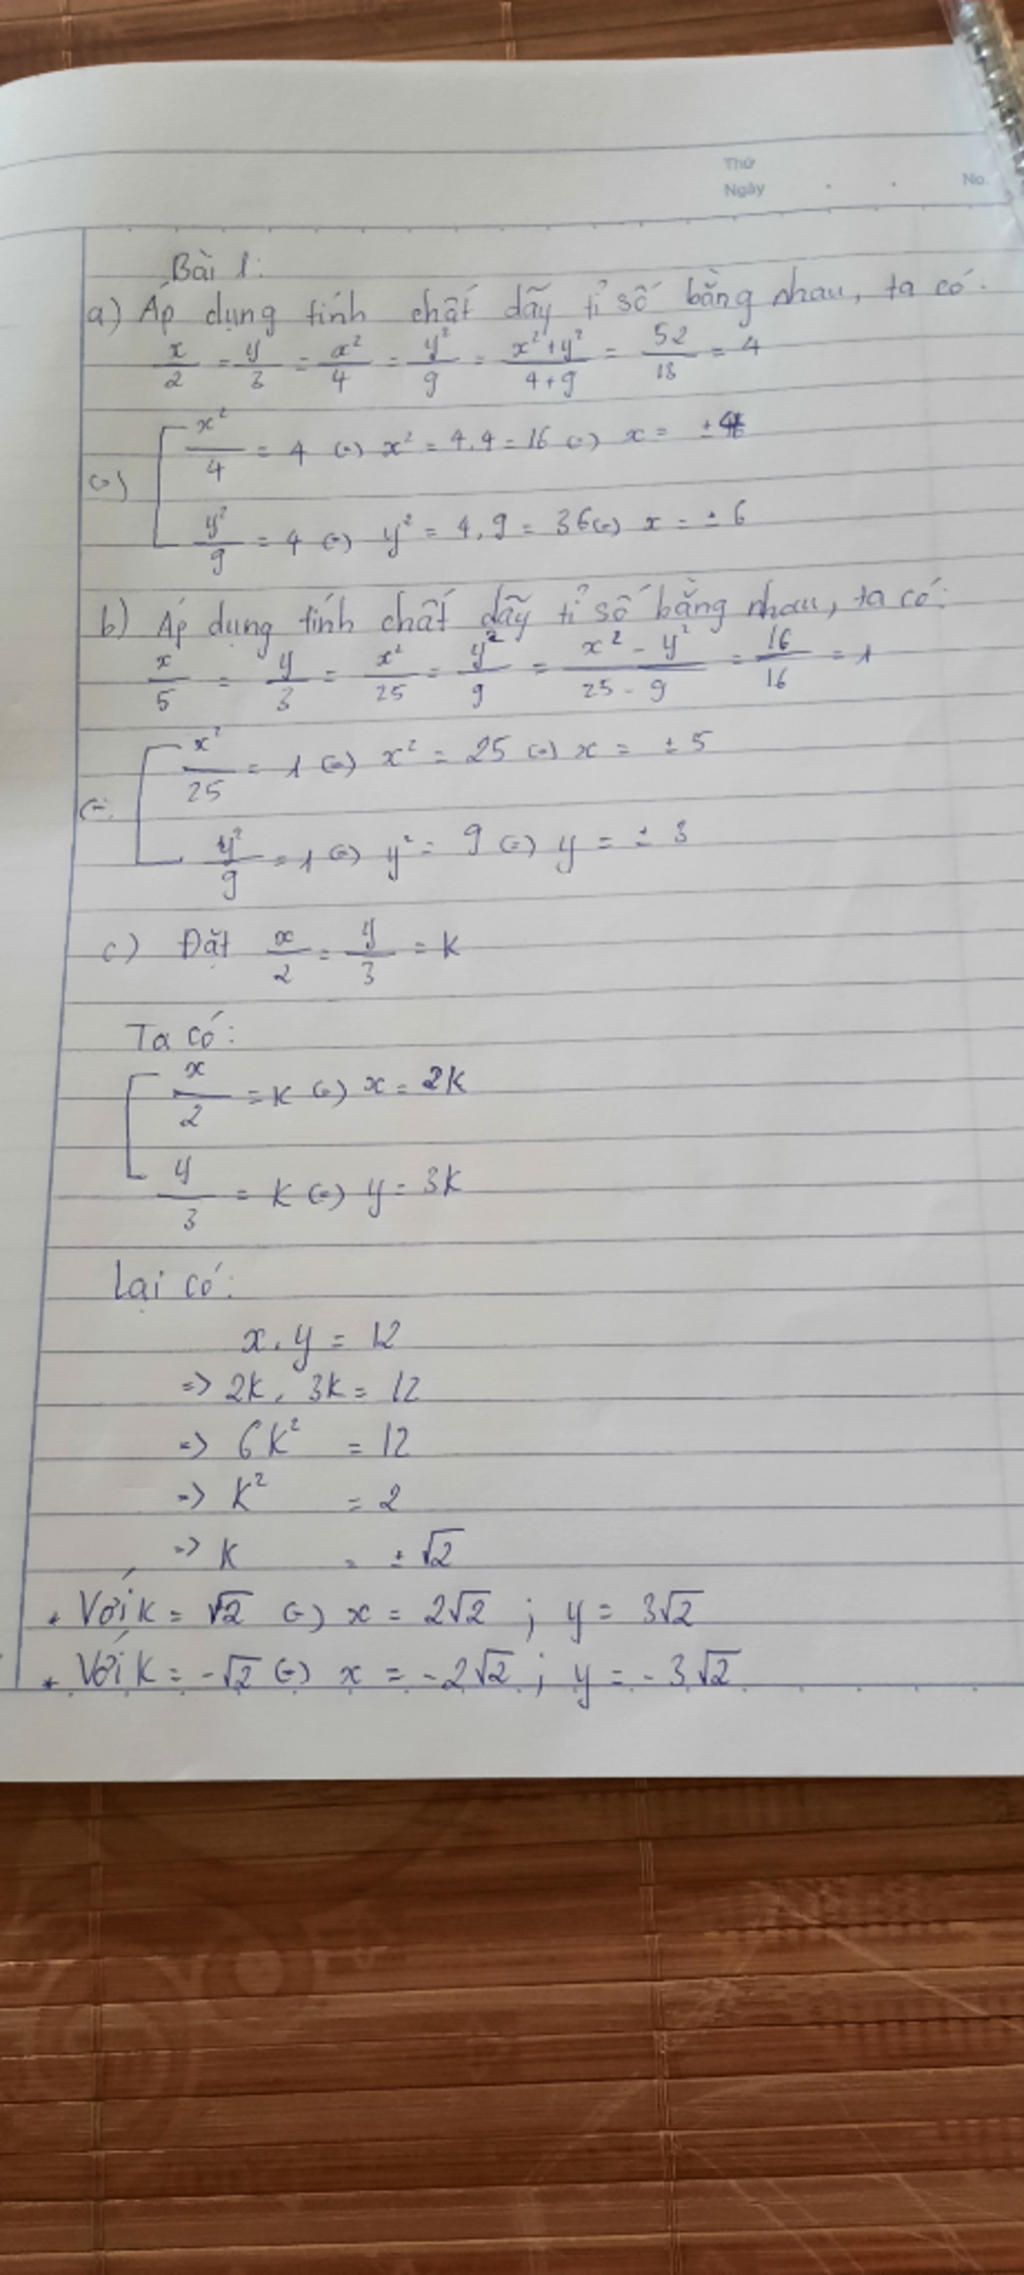 Thứ
Ngày
No.
Bài 1:
a) Áp dụng tính chất dãy tỉ số bằng nhau, ta có:
x/2 = y/3 = x²/4 = y²/9 = (x²+y²)/(4+9) = 52/13 = 4
(=) [ x²/4 = 4 (=) x² = 4.4 = 16 (=) x = ±4
y²/9 = 4 (=) y² = 4.9 = 36 (=) x = ±6
b) Áp dụng tính chất dãy tỉ số bằng nhau, ta có:
x/5 = y/3 = x²/25 = y²/9 = (x² - y²)/(25 - 9) = 16/16 = 1
(=) [ x²/25 = 1 (=) x² = 25 (=) x = ±5
y²/9 = 1 (=) y² = 9 (=) y = ±3
c) Đặt x/2 = y/3 = k
Ta có:
[ x/2 = k (=) x = 2k
y/3 = k (=) y = 3k
Lại có:
x.y = 12
=> 2k.3k = 12
=> 6k² = 12
=> k² = 2
=> k = ±√2
* Với k = √2 (=) x = 2√2 ; y = 3√2
* Với k = -√2 (=) x = -2√2 ; y = -3√2